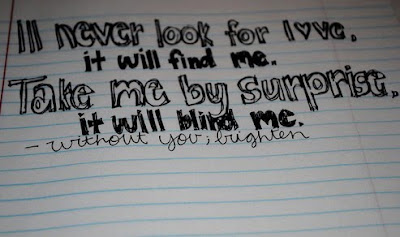 Ill never look for l♥ve.
it will find me.
Take me by surprise,
it will blind me.
- without you; brighten